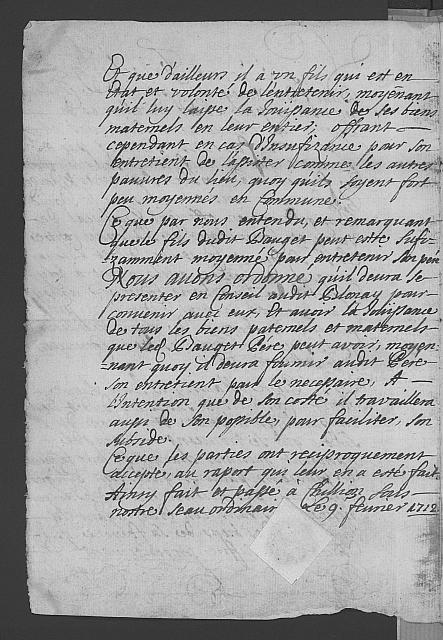 Et que d'ailleurs il à un fils qui est en
état et volonté de lentretenir, moyenant
quil luy laisse la Jouissance de ses biens
maternels en leur entier, offrant
cependant en cas d'Insufizance pour son
entretient de lassister comme les autres
pauvres du lieu, quoy quils soyent fort
peu moyennes en Commune.
Ce que par nous entendu, et remarquant
que le fils dudit Dauget peut estre sufi-
zamment moyenné pour entretenir son pere
Nous avons ordonné quil devra se
presenter en Conseil audit Blonay pour
convenir avec eux, Et avoir la Jouissance
de tous les biens paternels et maternels
que led Dauget Pere peut avoir, moyen-
nant quoy il devra fournir audit Pere
son entretient pour le necessaire, A
l'Intention que de son costé il travaillera
aussi de son possible, pour faciliter, son
subside.
Ce que les parties ont reciproquement
accepté, au raport qui leur en a esté fait
Ainsy fait et passé à Chillion sous
nostre seau ordinair Le 9. fevrier 1712